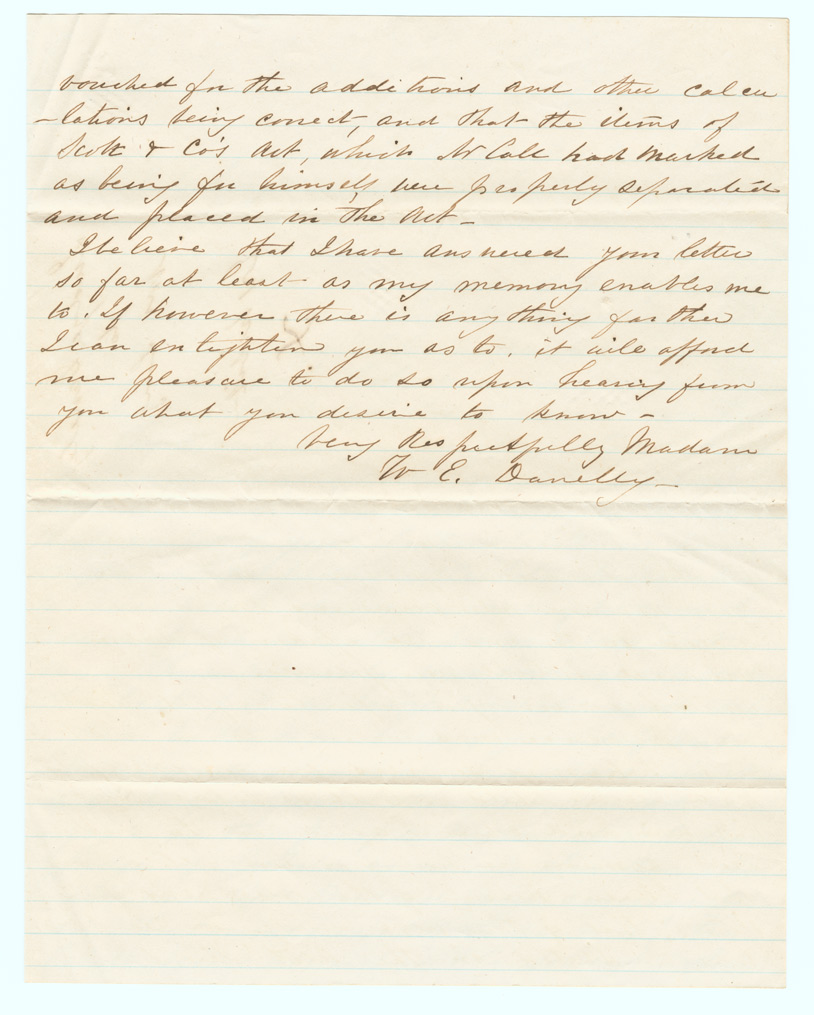 vouched for the additions and other calcu
-lations being correct, and that the items of
Scott & Co's Act, which Mr Call had marked
as being for himself, were properly separated
and placed in the Act-
I believe that I have answered your letter
so far at least as my memory enables me
to. If however there is anything farther
I can enlighten you as to, it will afford
me pleasure to do so upon hearing from
you what you desire to know-
Very Respectfully Madam
W E. Danelly-